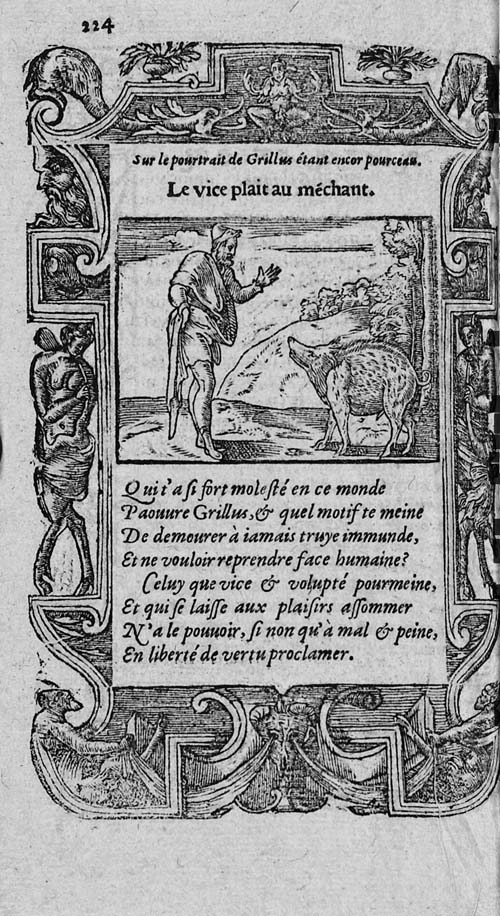 224
Sur le pourtrait de Grillus étant encor pourceau.
Le vice plait au méchant.
Qui t'a si fort molesté en ce monde
Paouure Grillus, & quel motif te meine
De demourer à iamais truye immunde,
Et ne vouloir reprendre face humaine?
Celuy que vice & volupté pourmeine,
Et qui se laisse aux plaisirs assommer
N'a le pouuoir, si non qu'à mal & peine,
En liberté de vertu proclamer.